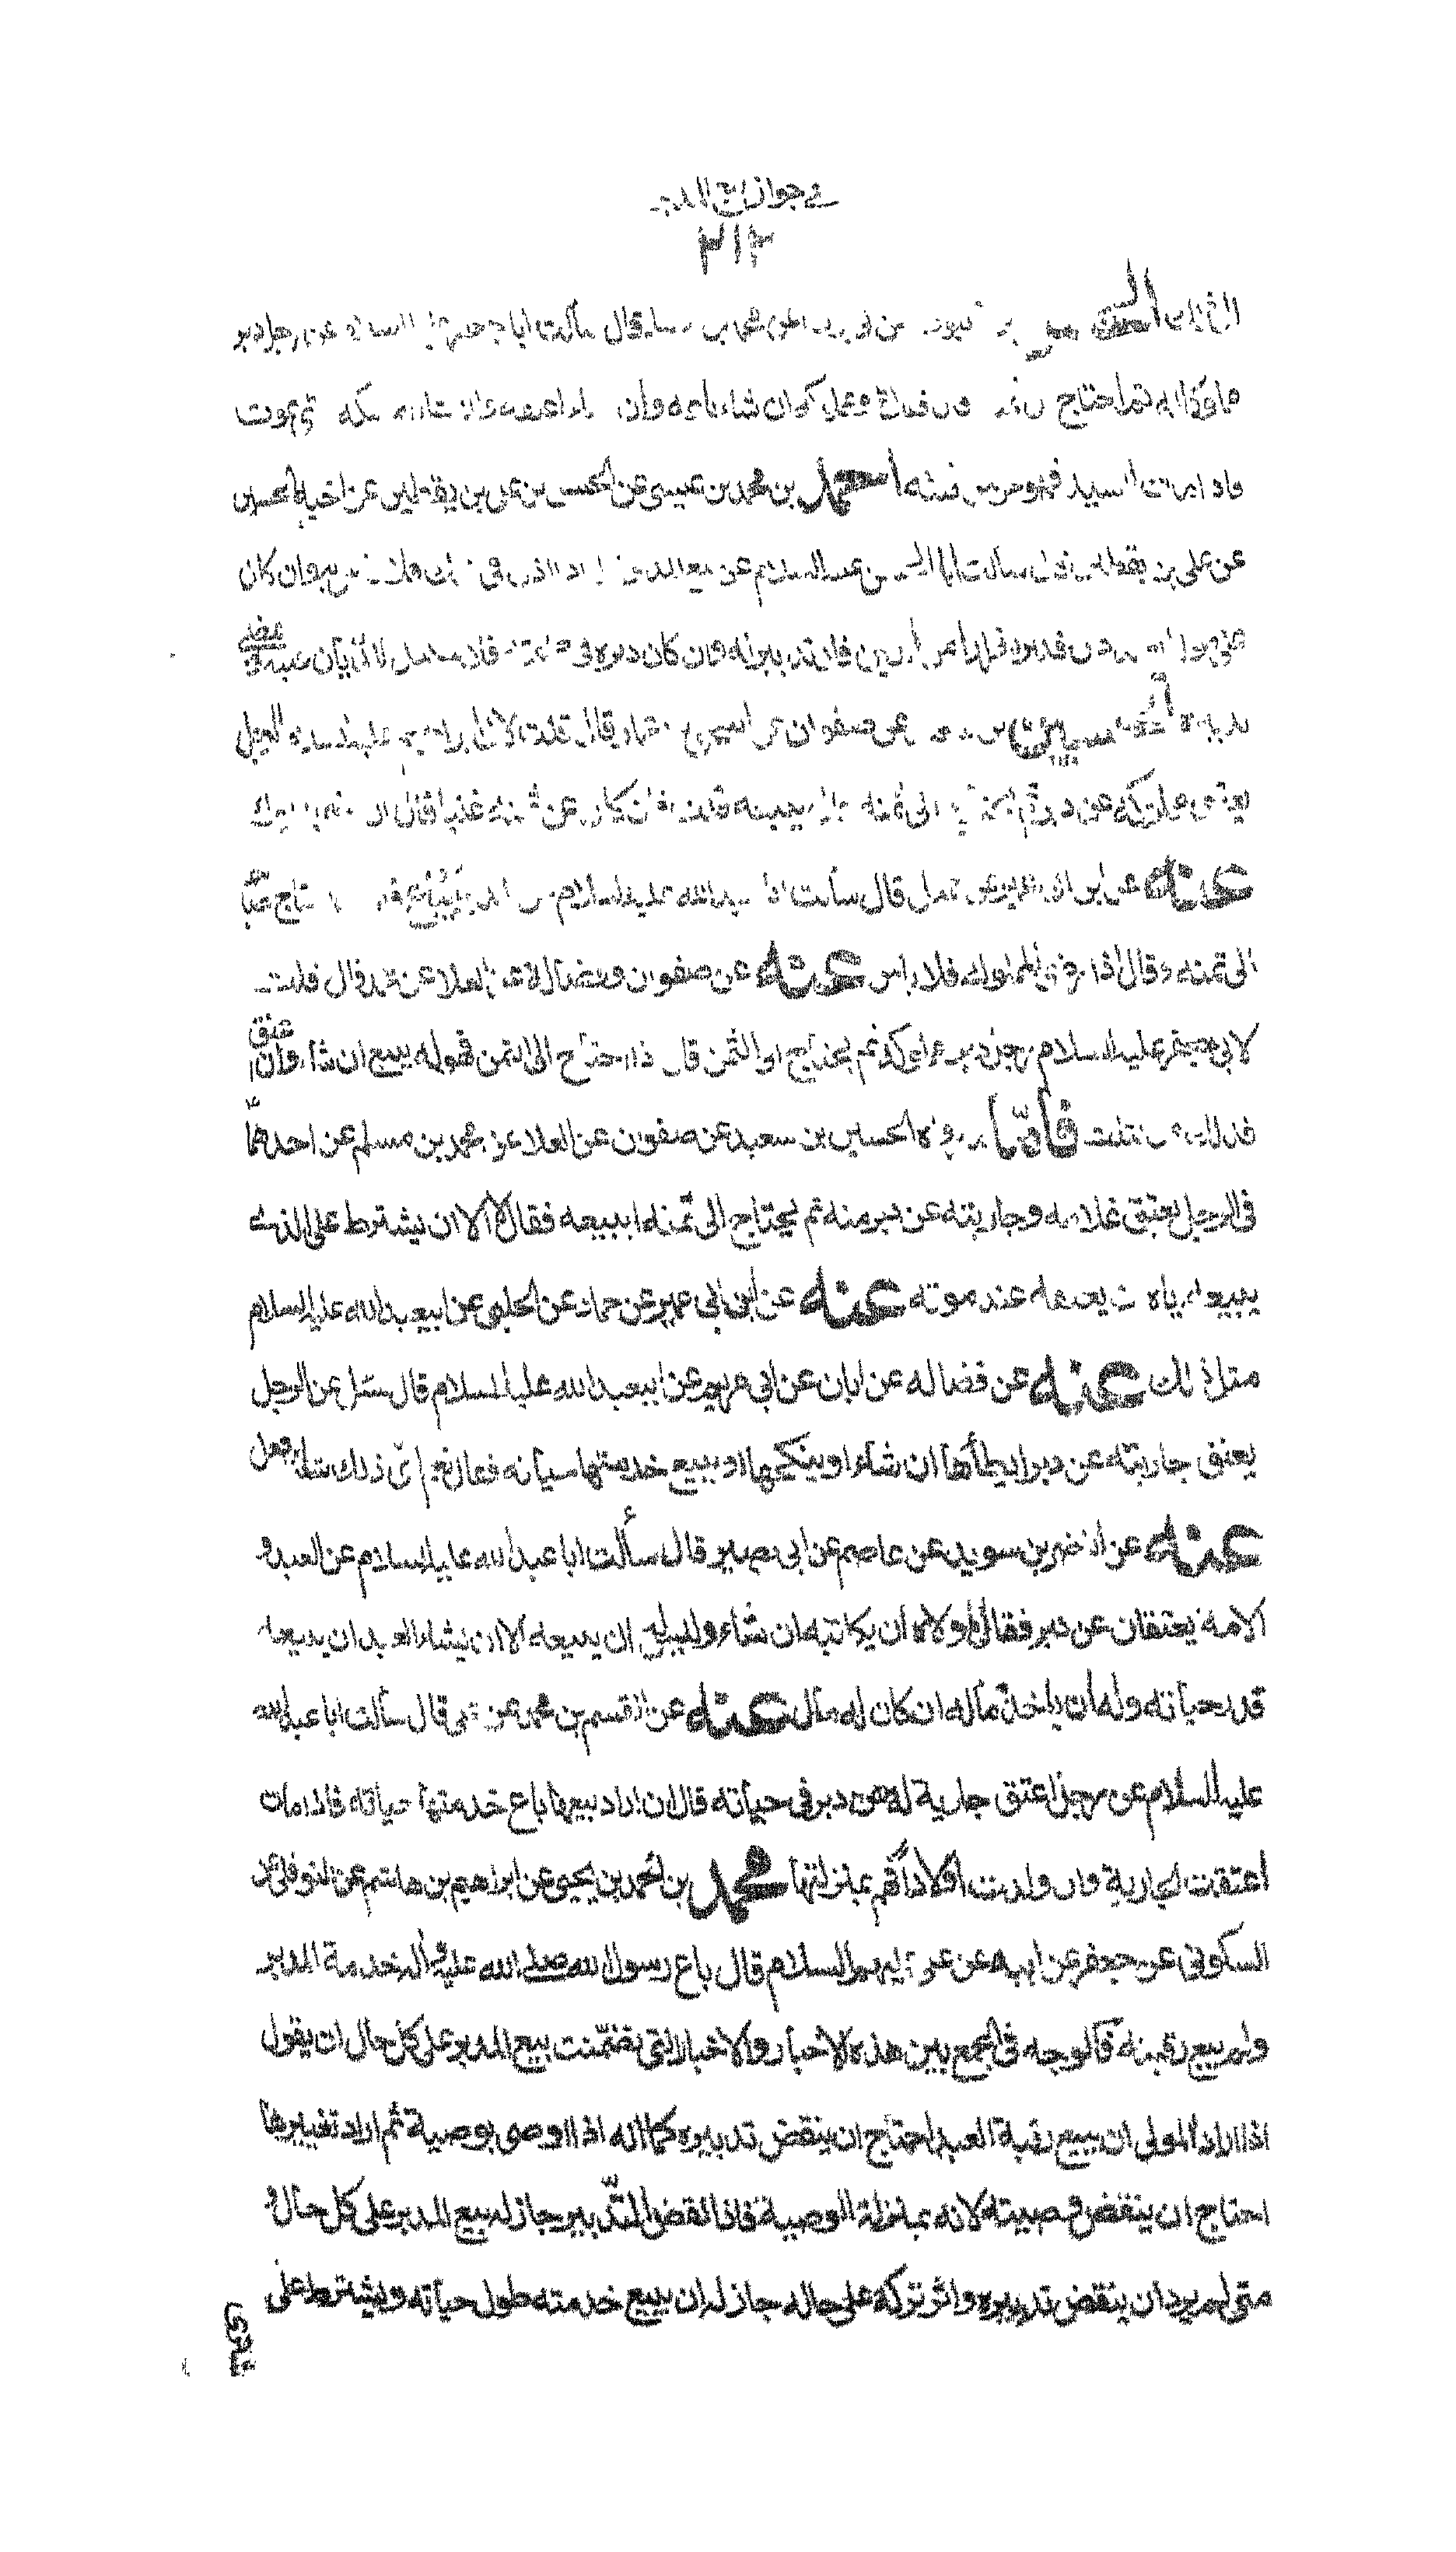 في جواز بيع المدبر
٢١٣
عن قال سألت ابا جعفر عليه السلام عن رجل دبر
مملوكا له ثم احتاج فقال هو مملوكه ان شاء باعه وان شاء اعتقه وان شاء امسكه حتى يموت
فاذا مات السيد فهو حر من ثلثه احمد بن محمد بن عيسى عن الحسن بن علي بن يقطين عن اخيه الحسين
عن علي بن يقطين قال سألت ابا الحسن عليه السلام عن بيع المدبر قال اذا اذن في ذلك فلا بأس به وان كان
على فدبره فرارا من الدين فلا تدبير له وان كان دبره في صحة وسلامة فلا سبيل للديان عليه ويمضي
تدبيره الحسين بن سعيد عن صفوان عن اسحق بن عمار قال قلت لابي ابراهيم عليه السلام الرجل
يعتق مملوكه عن دبر ثم يحتاج الى ثمنه قال يبيعه قلت فان كان عن ثمنه غنيا قال ان رضي المملوك
عنه عن ابن ابي عمير عن جميل قال سألت ابا عبد الله عليه السلام عن المدبر ايباع فقال ان احتاج صاحبه
الى ثمنه وقال اذا رضي المملوك فلا بأس عنه عن صفوان وفضالة عن العلا عن محمد قال قلت
لابي جعفر عليه السلام رجل دبر مملوكه ثم يحتاج الى الثمن قال اذا احتاج الى الثمن فهو له يبيع ان شاء وان اعتق
فذلك من الثلث فأما ما رواه الحسين بن سعيد عن صفوان عن العلاء عن محمد بن مسلم عن احدهما
في الرجل يعتق غلامه وجاريته عن دبر منه ثم يحتاج الى ثمنه ايبيعه فقال لا الا ان يشترط على الذي
يبيعه اياه ان يعتقه عند موته عنه عن ابن ابي عمير عن حماد عن الحلبي عن ابيعبد الله عليه السلام
مثل ذلك عنه عن فضالة عن ابان عن ابي مريم عن ابيعبد الله عليه السلام قال سئل عن الرجل
يعتق جاريته عن دبر ايطأها ان شاء او ينكحها او يبيع خدمتها حياته فقال نعم اي ذلك شاء فعل
عنه عن النضر بن سويد عن عاصم عن ابي بصير قال سألت ابا عبد الله عليه السلام عن العبد و
الامة يعتقان عن دبر فقال لمولاه ان يكاتبه ان شاء وليس له ان يبيعه الا ان يشاء العبد ان يبيعه
قدر حياته وله ان ياخذ ماله ان كان له مال عنه عن القسم بن محمد عن علي قال سألت ابا عبد الله
عليه السلام عن رجل اعتق جارية له عن دبر في حياته قال ان اراد بيعها باع خدمتها حياته فاذا مات
اعتقت الجارية وان ولدت اولادا فهم بمنزلتها محمد بن احمد بن يحيى عن ابراهيم بن هاشم عن النوفلي عن
السكوني عن جعفر عن ابيه عن علي عليهم السلام قال باع رسول الله صلى الله عليه وآله خدمة المدبر
ولم يبع رقبته فالوجه في الجمع بين هذه الاخبار والاخبار التي تضمنت بيع المدبر على كل حال ان يقول
اذا اراد المولى ان يبيع رقبة العبد احتاج ان ينقض تدبيره كما انه اذا اوصى بوصية ثم اراد تغييرها
احتاج ان ينقض وصيته لانه بمنزلة الوصية فاذا نقض التدبير جاز له بيع المدبر على كل حال و
متى لم يرد ان ينقض تدبيره واثر تركه على حاله جاز له ان يبيع خدمته طول حياته ويشترط على